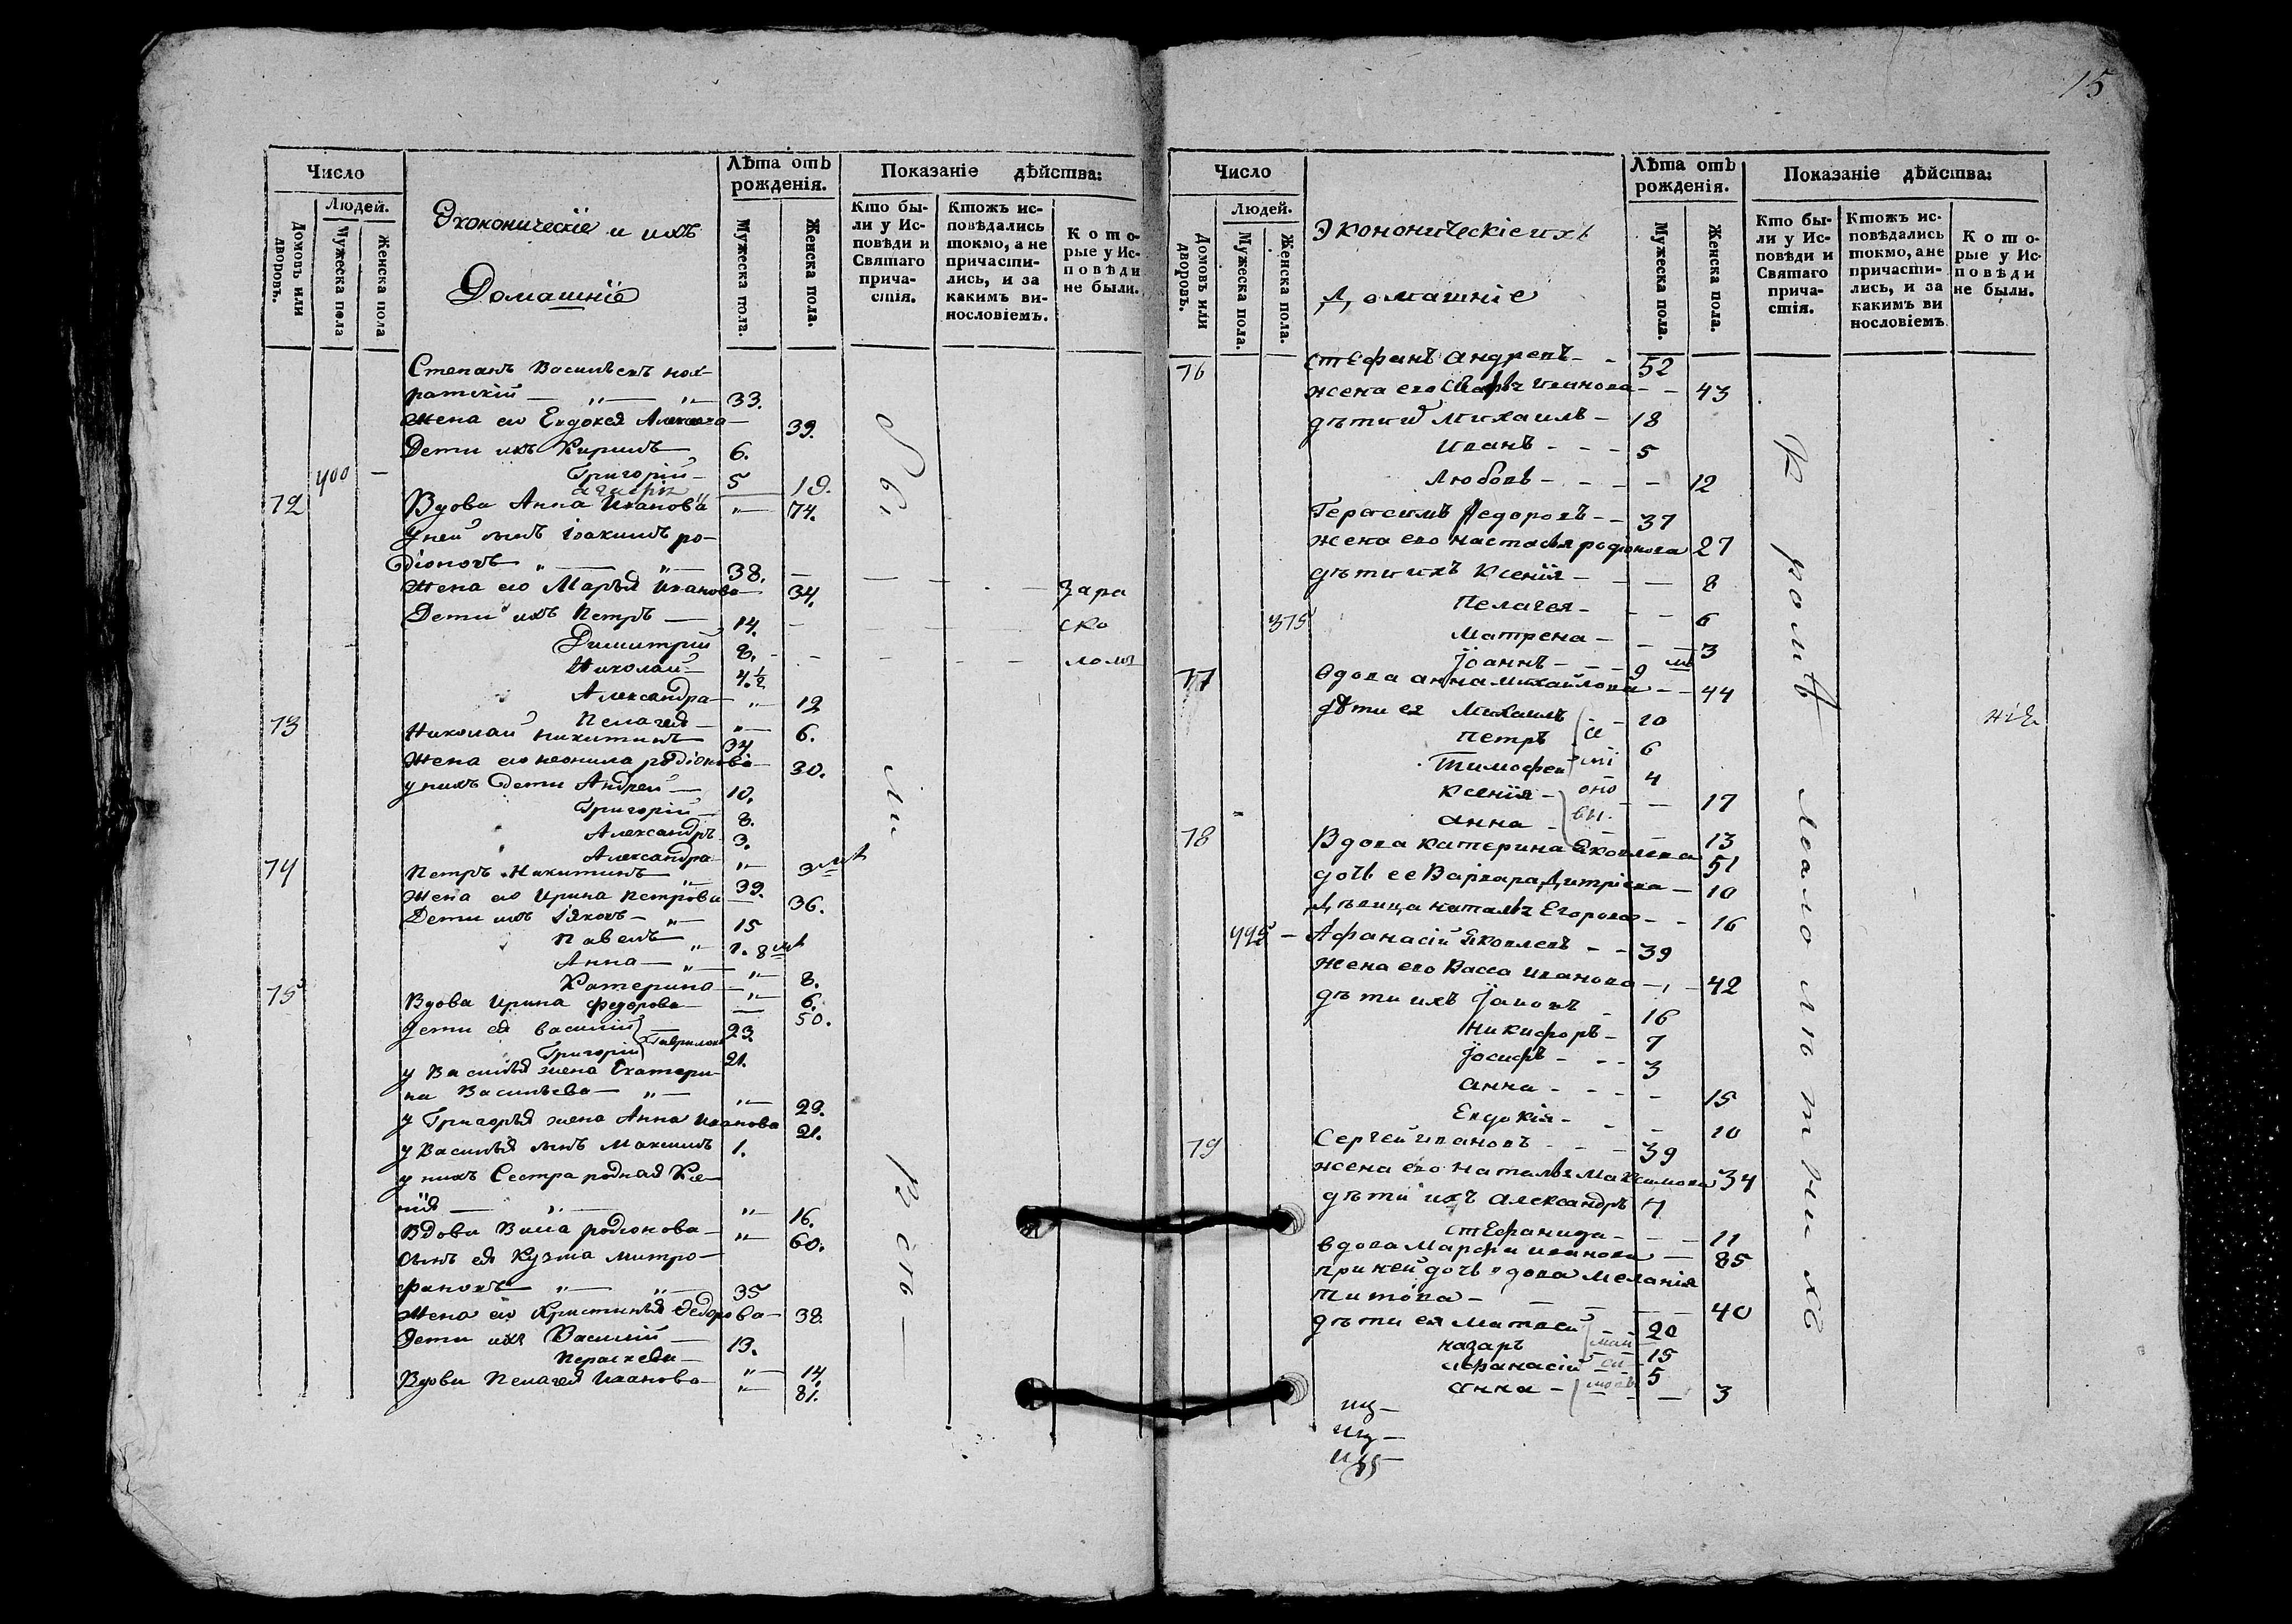 15
Число
Людей.
Домовъ или дворовъ.
Мужеска пола
Женска пола
Экономическіе и ихъ
Домашніе
Лѣта отъ рожденія.
Мужеска пола.
Женска пола.
Показаніе дѣйства:
Кто бы-
ли у Ис-
повѣди и
Святаго
прича-
стія.
Ктожъ ис-
повѣдались
токмо, а не
причасти-
лись, и за
какимъ ви-
нословіемъ.
Кото-
рые у Ис-
повѣди
не были.
Степанъ Васильевъ
33.
Жена его Евдокея 39.
Дети ихъ Кирилъ 6.
400 — Григорій 5
19.
72 Вдова Анна Иванова 74.
у ней сынъ Іоакимъ ро-
діоновъ 38.
Жена его Марья Иванова 34.
Дети ихъ Петръ 14.
Димитрій 8.
Николай 4.½
Александра 12
Пелагея 6.
73 Николай Никитинъ 34
Жена его неонила родіонова 30.
у нихъ дети Андрей 10.
Григорій 8.
Александръ 3.
Александра 3 мѣ
74 Петръ Никитинъ 39.
Жена его Ирина Петрова 36.
Дети ихъ Іяковъ 15
Павелъ 1. 8 мѣ
Анна 8.
Катерина 6.
75 Вдова Ирина Федорова 50.
Дети ея Василій 23.
Григорій Гавриловы 21.
у Василья жена Екатери-
на Васильева 29.
у Григорья жена Анна Иванова 21.
у Василья сынъ Максимъ 1.
у нихъ Сестра родная Ксе-
нія 16.
Вдова Васса родіонова 60.
сынъ ея Кузма митро-
фановъ 35
Жена его Христинья Федорова 38.
Дети ихъ Василій 13.
Параскева 14.
Вдова Пелагея Иванова 81.
Были
за рас
ко
ломъ
Число
Людей.
Домовъ или дворовъ.
Мужеска пола.
Женска пола.
Экономическіе ихъ
Домашніе
Лѣта отъ рожденія.
Мужеска пола.
Женска пола.
Показаніе дѣйства:
Кто бы-
ли у Ис-
повѣди и
Святаго
прича-
стія.
Ктожъ ис-
повѣдались
токмо, а не
причасти-
лись, и за
какимъ ви
нословіемъ.
Кото-
рые у Ис-
повѣди
не были.
76 стефанъ андреевъ 52
жена его Марѳа иванова 43
дѣти Михаилъ 18
иванъ 5
Любовь 12
Герасимъ Федоровъ 37
жена его настасья родіонова 27
дѣти ихъ Ксенія 8
Пелагея 6
375 Матрена 3
Іоаннъ 9 мѣ
77 вдова анна михайлова 44
дѣти ея Михаилъ 20
Петръ 6
Тимофей 4
Ксенія 17
анна 13
се
мі
оно
вы.
78 Вдова катерина Яковлева 51
дочь ее Варвара Дмитріева 10
Дѣвица наталья Егорова 16
Афанасій Яковлевъ 39
жена его Васса иванова 42
дѣти ихъ Іаковъ 16
Никифоръ 7
Іосифъ 3
анна 15
Евдокія 10
79 Сергей ивановъ 39
жена его наталья Максимова 34
дѣти ихъ александръ 7
стефанида 11
вдова Марфа иванова 85
при ней дочь вдова Меланія
титова 40
дѣти ея Матвей 20
назаръ 15
афанасій 5
анна 3
Кромѣ малолѣтнихъ